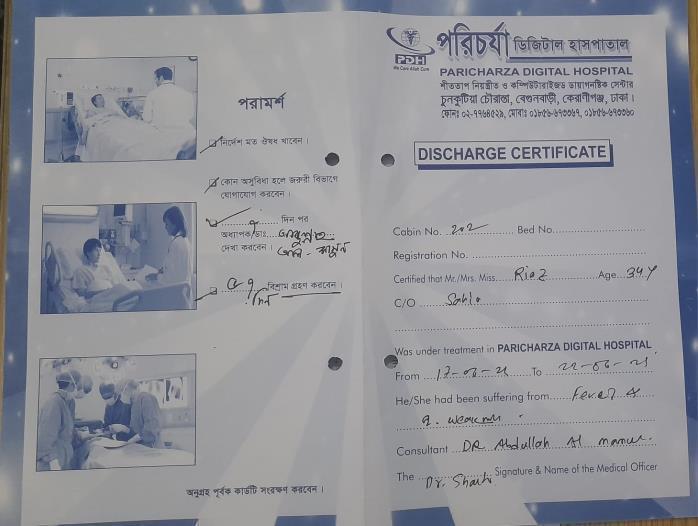 পরামর্শ
নির্দেশ মত ঔষধ খাবেন।
কোন অসুবিধা হলে জরুরী বিভাগে
যোগাযোগ করবেন।
দিন পর
অধ্যাপক/ডাঃ
দেখা করবেন।
বিশ্রাম গ্রহণ করবেন।
অনুগ্রহ পূর্বক কার্ডটি সংরক্ষণ করবেন।
PDH
We Care Allah Cure
পরিচর্যা ডিজিটাল হাসপাতাল
PARICHARZA DIGITAL HOSPITAL
শীততাপ নিয়ন্ত্রীত ও কম্পিউটারাইজড ডায়াগনষ্টিক সেন্টার
চুনকুটিয়া চৌরাস্তা, বেগুনবাড়ী, কেরাণীগঞ্জ, ঢাকা।
ফোনঃ ০২-৭৭৬৪৫২৯, মোবাঃ ০১৮৫৬-৬৭৩৩৬৭, ০১৮৫৬-৬৭৩৩৬০
DISCHARGE CERTIFICATE
Cabin No. 202 Bed No.
Registration No.
Certified that Mr./Mrs. Miss. Riaz Age 34 Y
C/O
Was under treatment in PARICHARZA DIGITAL HOSPITAL
From To 22-06-21
He/She had been suffering from Fever &
Consultant DR Abdullah Al mamun.
The Dr. Signature & Name of the Medical Officer